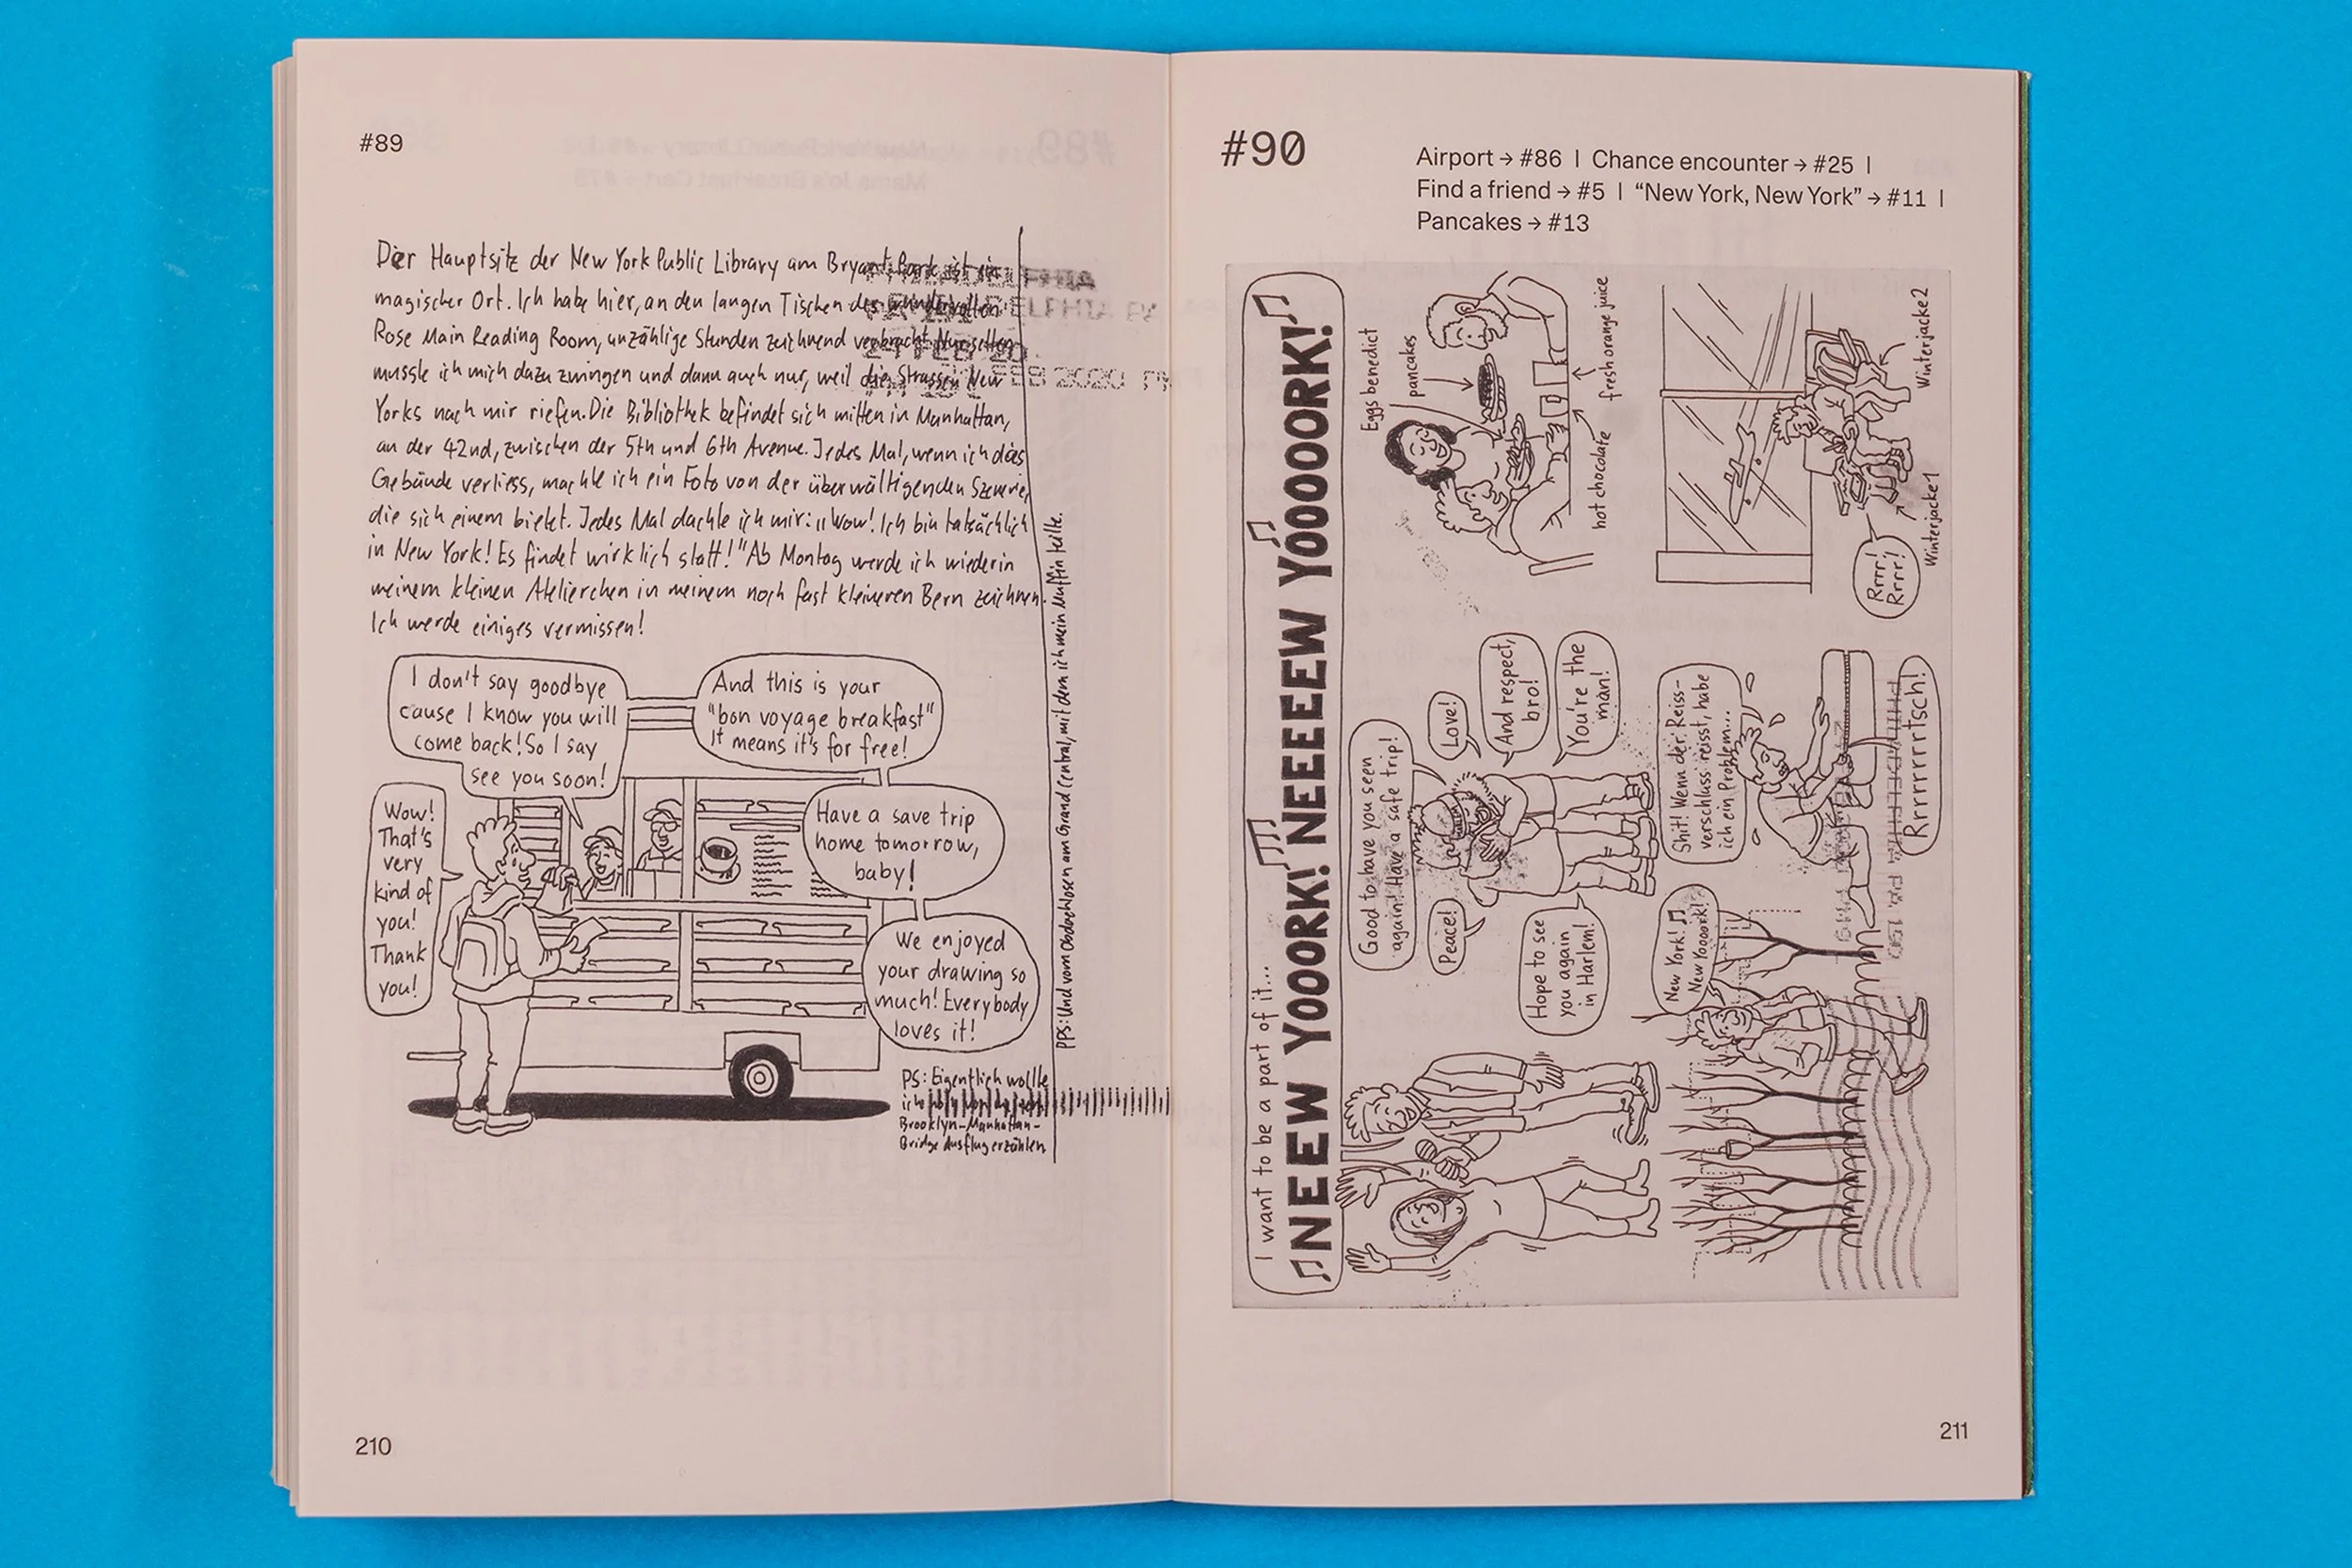 #89
Der Hauptsitz der New York Public Library am Bryant Park ist ein
magischer Ort. Ich habe hier, an den langen Tischen des wundervollen
Rose Main Reading Room, unzählige Stunden zeichnend verbracht. Nur selten
musste ich mich dazu zwingen und dann auch nur, weil die Strassen New
Yorks nach mir riefen. Die Bibliothek befindet sich mitten in Manhattan,
an der 42nd, zwischen der 5th und 6th Avenue. Jedes Mal, wenn ich das
Gebäude verliess, machte ich ein Foto von der überwältigenden Szenerie,
die sich einem bietet. Jedes Mal dachte ich mir: "Wow! Ich bin tatsächlich
in New York! Es findet wirklich statt!" Ab Montag werde ich wieder in
meinem kleinen Atelierchen in meinem noch fast kleineren Bern zeichnen.
Ich werde einiges vermissen!
I don't say goodbye
cause I know you will
come back! So I say
see you soon!
And this is your
"bon voyage breakfast"
It means it's for free!
Wow!
That's
very
kind of
you!
Thank
you!
Have a save trip
home tomorrow,
baby!
We enjoyed
your drawing so
much! Everybody
loves it!
PS: Eigentlich wollte
ich
Brooklyn-Manhattan-
Bridge Ausflug erzählen
PPS: Und vom Obdachlosen am Grand Central, mit dem ich mein Muffin teilte.
24 FEB 20
FEB 2020 PM
210
#90
Airport → #86 | Chance encounter → #25 |
Find a friend → #5 | “New York, New York” → #11 |
Pancakes → #13
I want to be a part of it...
NEEW YOOORK! NEEEEEW YOOOOOORK!
Good to have you seen
again! Have a safe trip!
Love!
And respect,
bro!
You're the
man!
Peace!
Hope to see
you again
in Harlem!
Eggs benedict
pancakes
hot chocolate
fresh orange juice
New York!
New Yoooork!
Shit! Wenn der Reiss-
verschluss reisst, habe
ich ein Problem...
Rrrrrrrtsch!
Rrrr!
Rrrr!
Winterjacke 1
Winterjacke 2
PHILADELPHIA PA 190
211